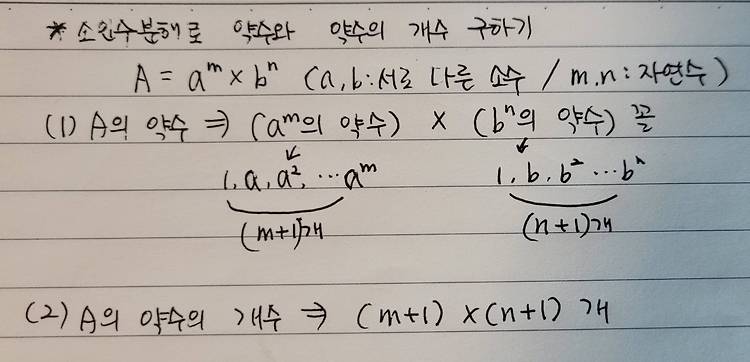 * 소인수분해로 약수와 약수의 개수 구하기
A = aᵐ × bⁿ (a, b : 서로 다른 소수 / m, n : 자연수)
(1) A의 약수 ⇒ (aᵐ의 약수) × (bⁿ의 약수) 꼴
↙ ↙
1, a, a², ⋯ aᵐ 1, b, b² ⋯ bⁿ
(m+1)개 (n+1)개
(2) A의 약수의 개수 ⇒ (m+1) × (n+1) 개